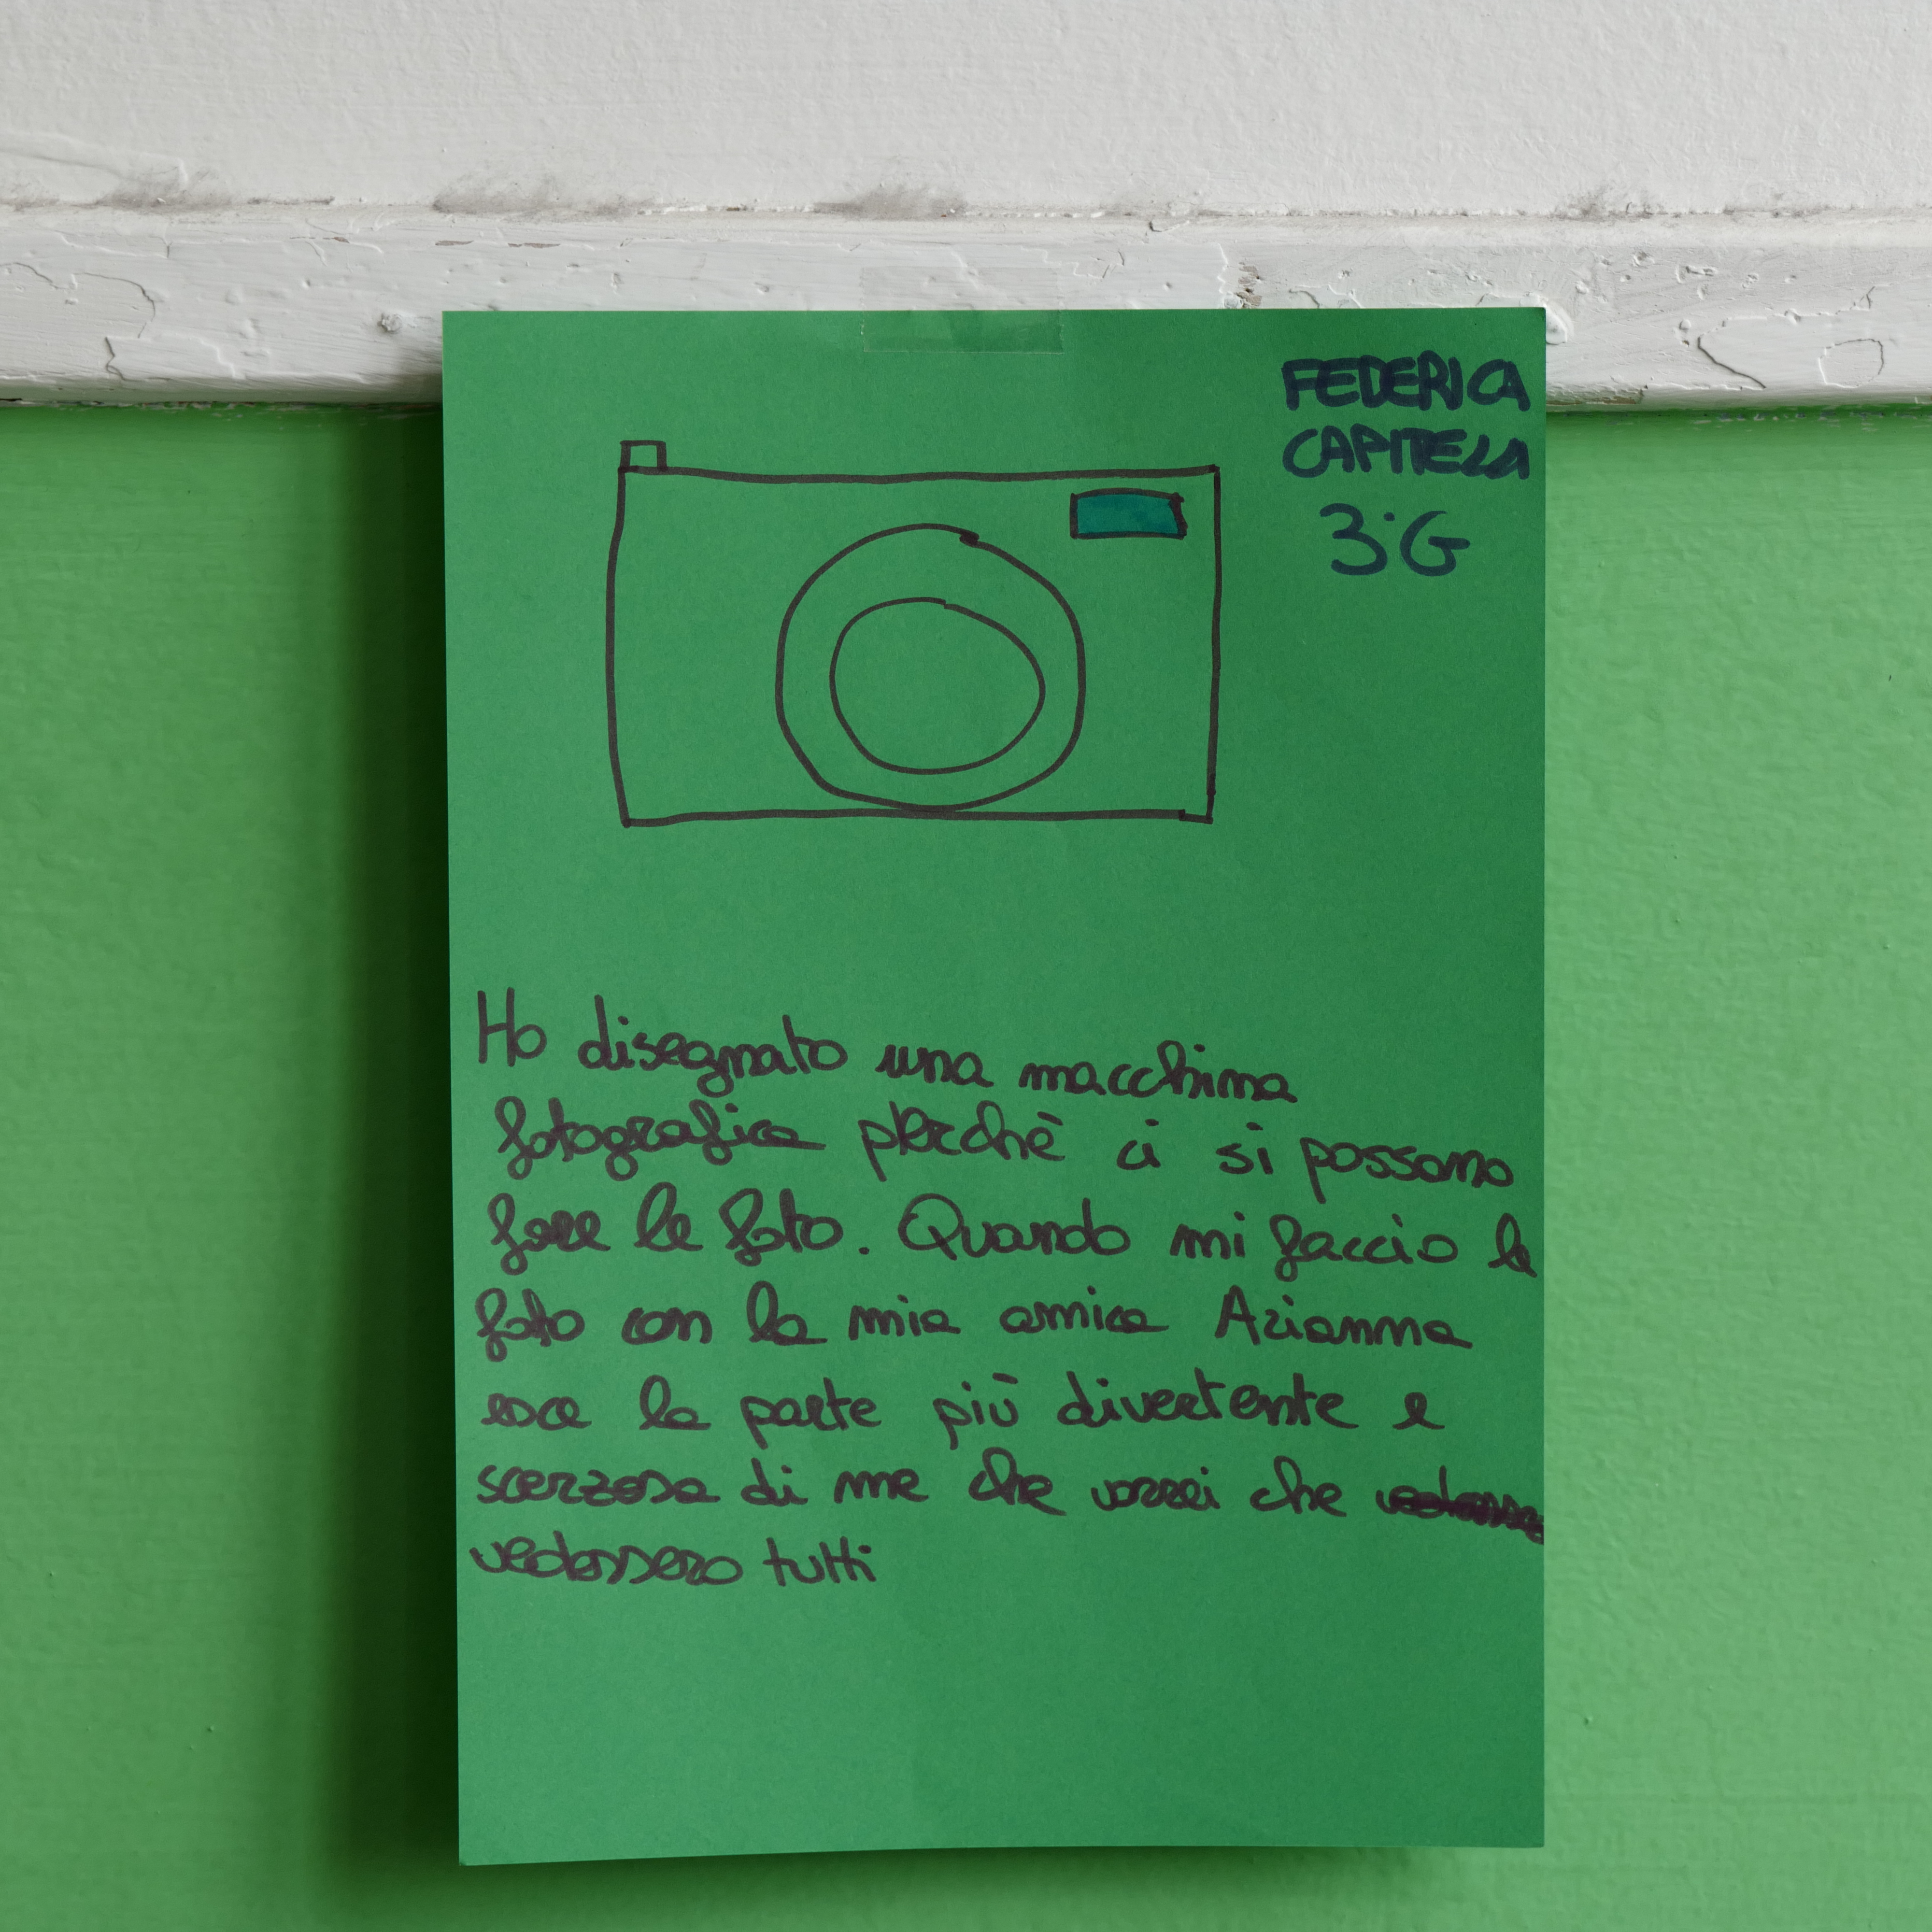 FEDERICA
CAPITELLA
3°G
Ho disegnato una macchina
fotografica perchè ci si possono
fare le foto. Quando mi faccio le
foto con la mia amica Arianna
esce la parte più divertente e
scerzosa di me che vorrei che
vedessero tutti